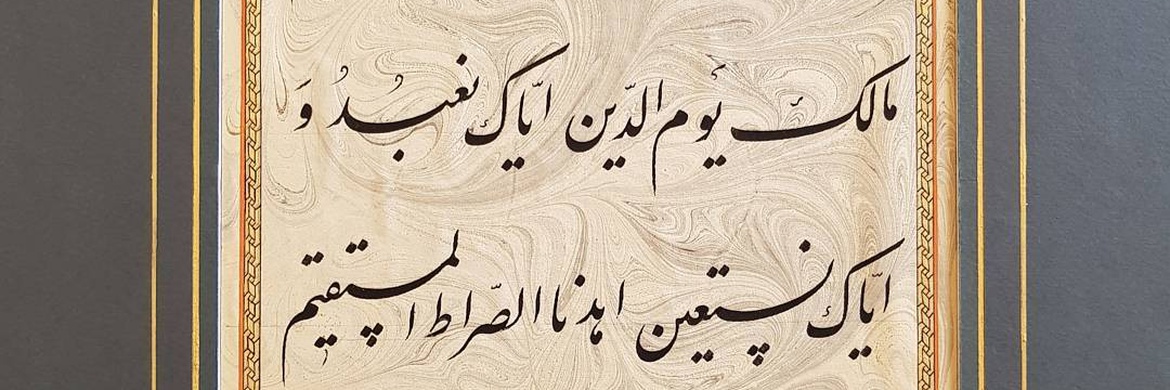 مالک یَوم الدّین ایّاک نعبدُ وَ
ایّاک نستعین اهدنا الصّراط المستقیم